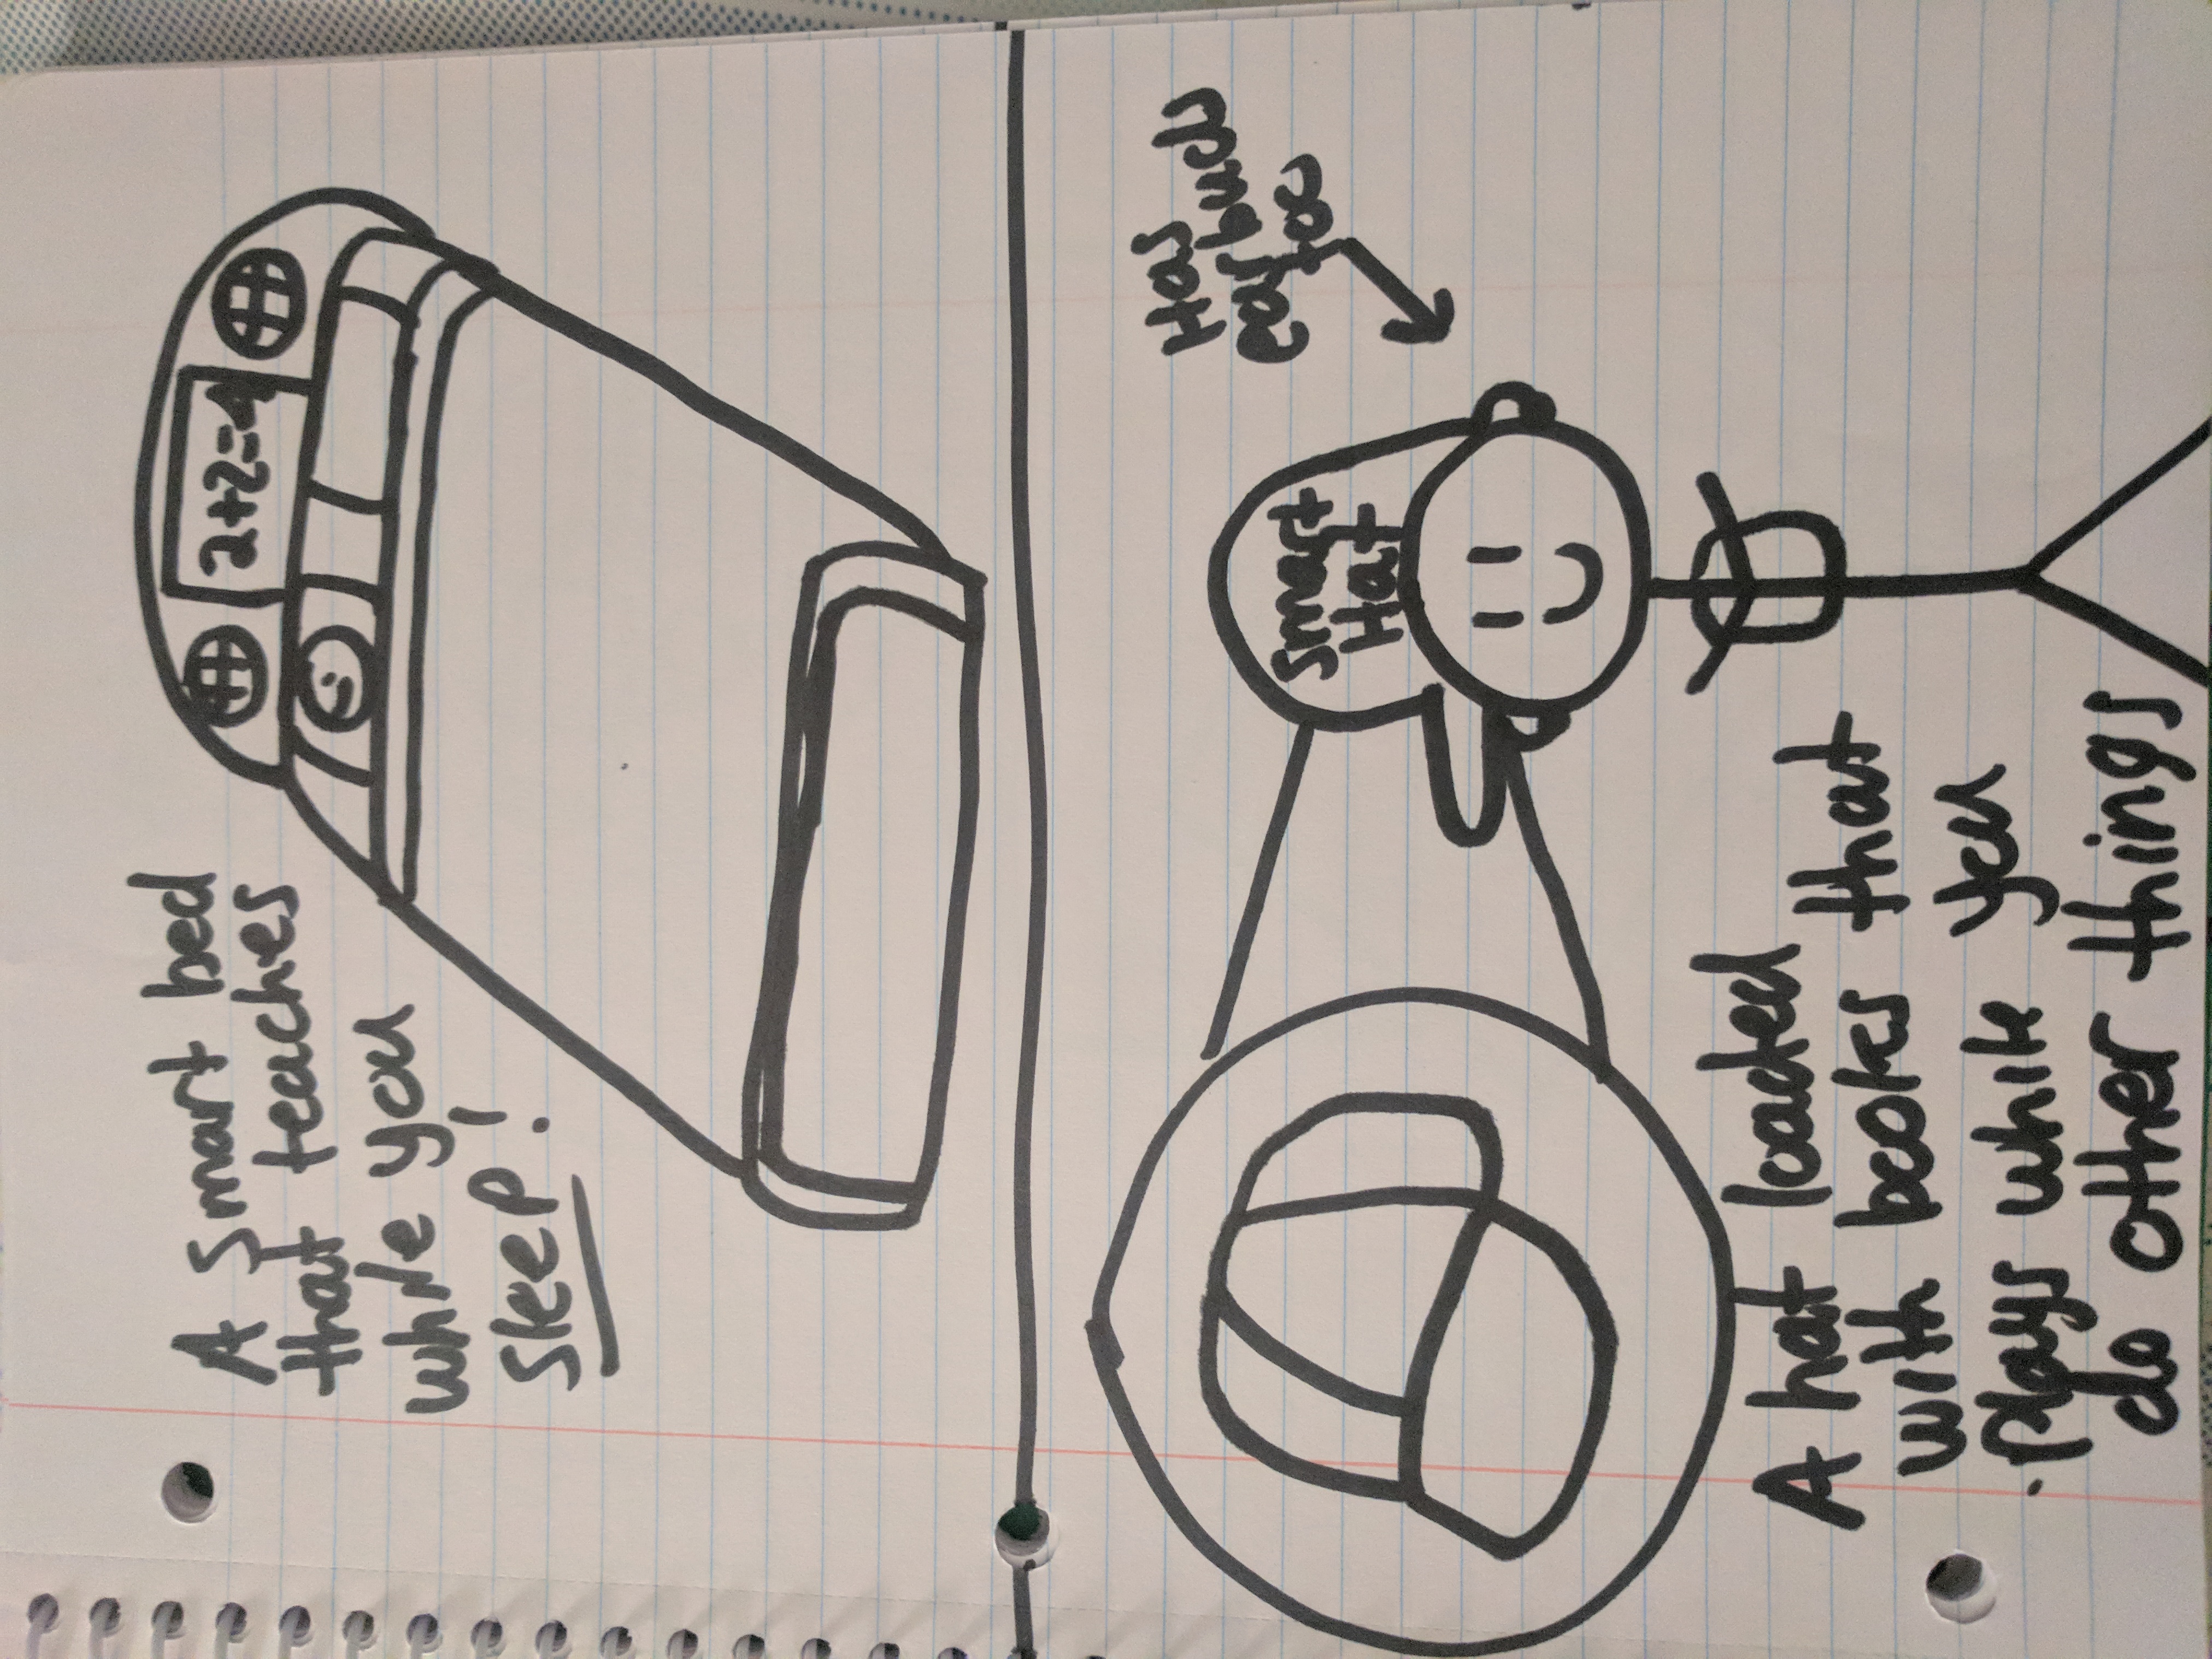 A smart bed
that teaches
while you
sleep!
2+2=4
Has
earbuds
too
Smart
Hat
A hat loaded
with books that
plays while you
do other things